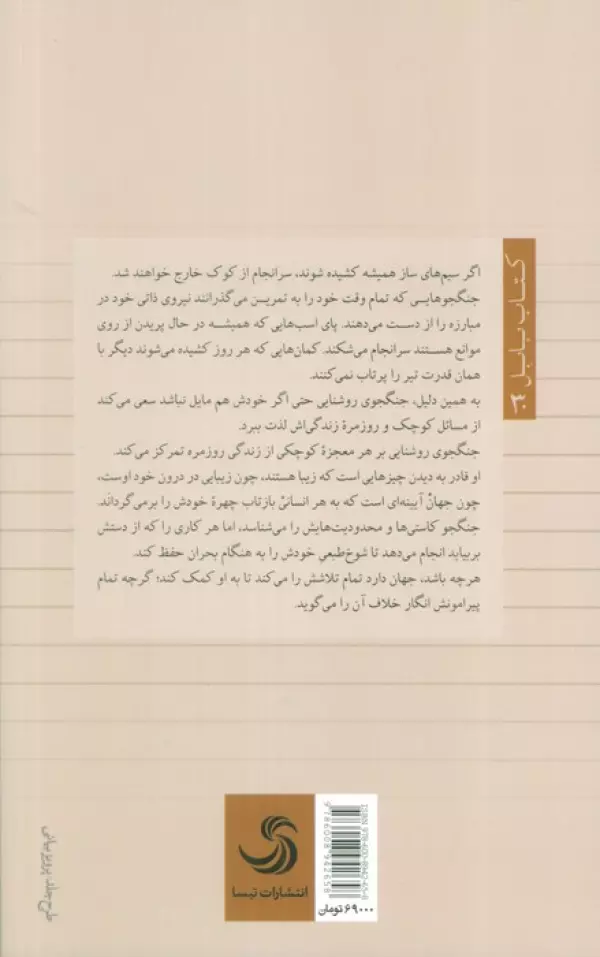 کتاب بابل ۰۳
اگر سیم‌های ساز همیشه کشیده شوند، سرانجام از کوک خارج خواهند شد.
جنگجوهایی که تمام وقت خود را به تمرین می‌گذرانند نیروی ذاتی خود در
مبارزه را از دست می‌دهند. پای اسب‌هایی که همیشه در حال پریدن از روی
موانع هستند سرانجام می‌شکند. کمان‌هایی که هر روز کشیده می‌شوند دیگر با
همان قدرت تیر را پرتاب نمی‌کنند.
به همین دلیل، جنگجوی روشنایی حتی اگر خودش هم مایل نباشد سعی می‌کند
از مسائل کوچک و روزمرهٔ زندگی‌اش لذت ببرد.
جنگجوی روشنایی بر هر معجزهٔ کوچکی از زندگی روزمره تمرکز می‌کند.
او قادر به دیدن چیزهایی است که زیبا هستند، چون زیبایی در درون خود اوست،
چون جهانْ آیینه‌ای است که به هر انسانیْ بازتاب چهرهٔ خودش را برمی‌گرداند.
جنگجو کاستی‌ها و محدودیت‌هایش را می‌شناسد، اما هر کاری را که از دستش
بربیاید انجام می‌دهد تا شوخ‌طبعیِ خودش را به هنگام بحران حفظ کند.
هرچه باشد، جهان دارد تمام تلاشش را می‌کند تا به او کمک کند؛ گرچه تمام
پیرامونش انگار خلاف آن را می‌گوید.
طرح جلد: پرویز بیانی
انتشارات تیسا
ISBN 978-600-8942-65-8
9786008942658
۶۹۰۰۰ تومان